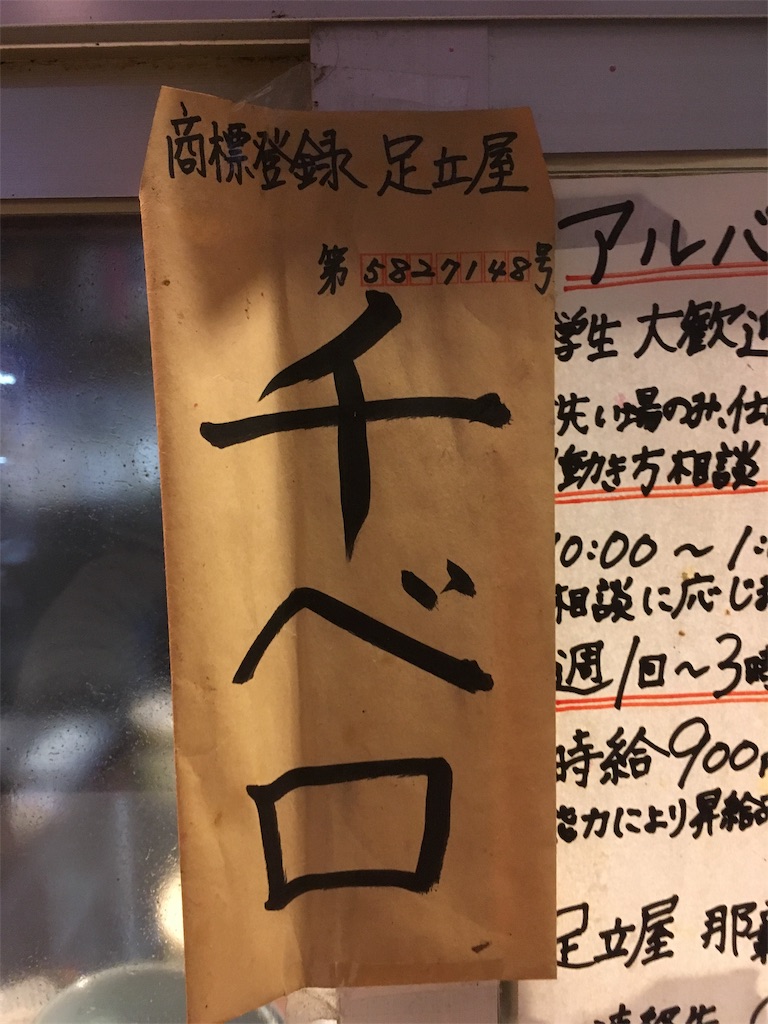 商標登録 足立屋
第5827148号
千ベロ
アルバ
学生 大歓迎
洗い場のみ、仕
働き方相談
10:00〜1:
相談に応じま
週1回〜3時
時給900
能力により昇給
足立屋 那覇
連絡先